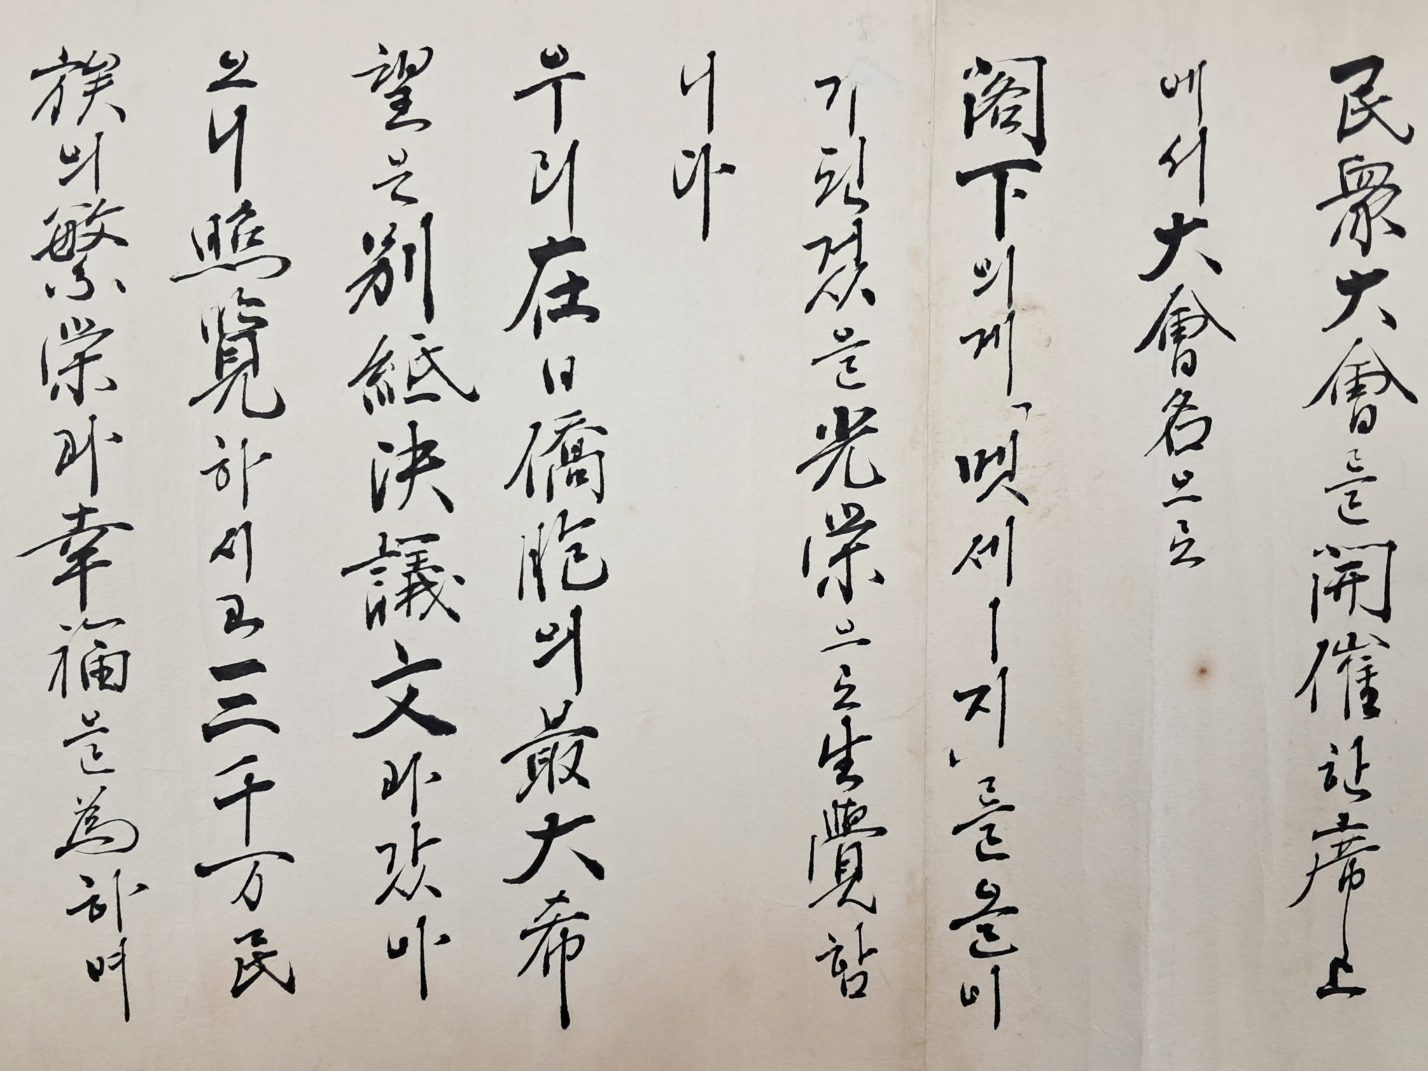 民衆大會를開催한席上
에서大會名으로
閣下의게「멧세ㅣ지」를올이
기된것을光榮으로生覺합
니다
우리在日僑胞의最大希
望은別紙決議文과갔아
오니照覽하시고三千万民
族의繁榮과幸福을為하여